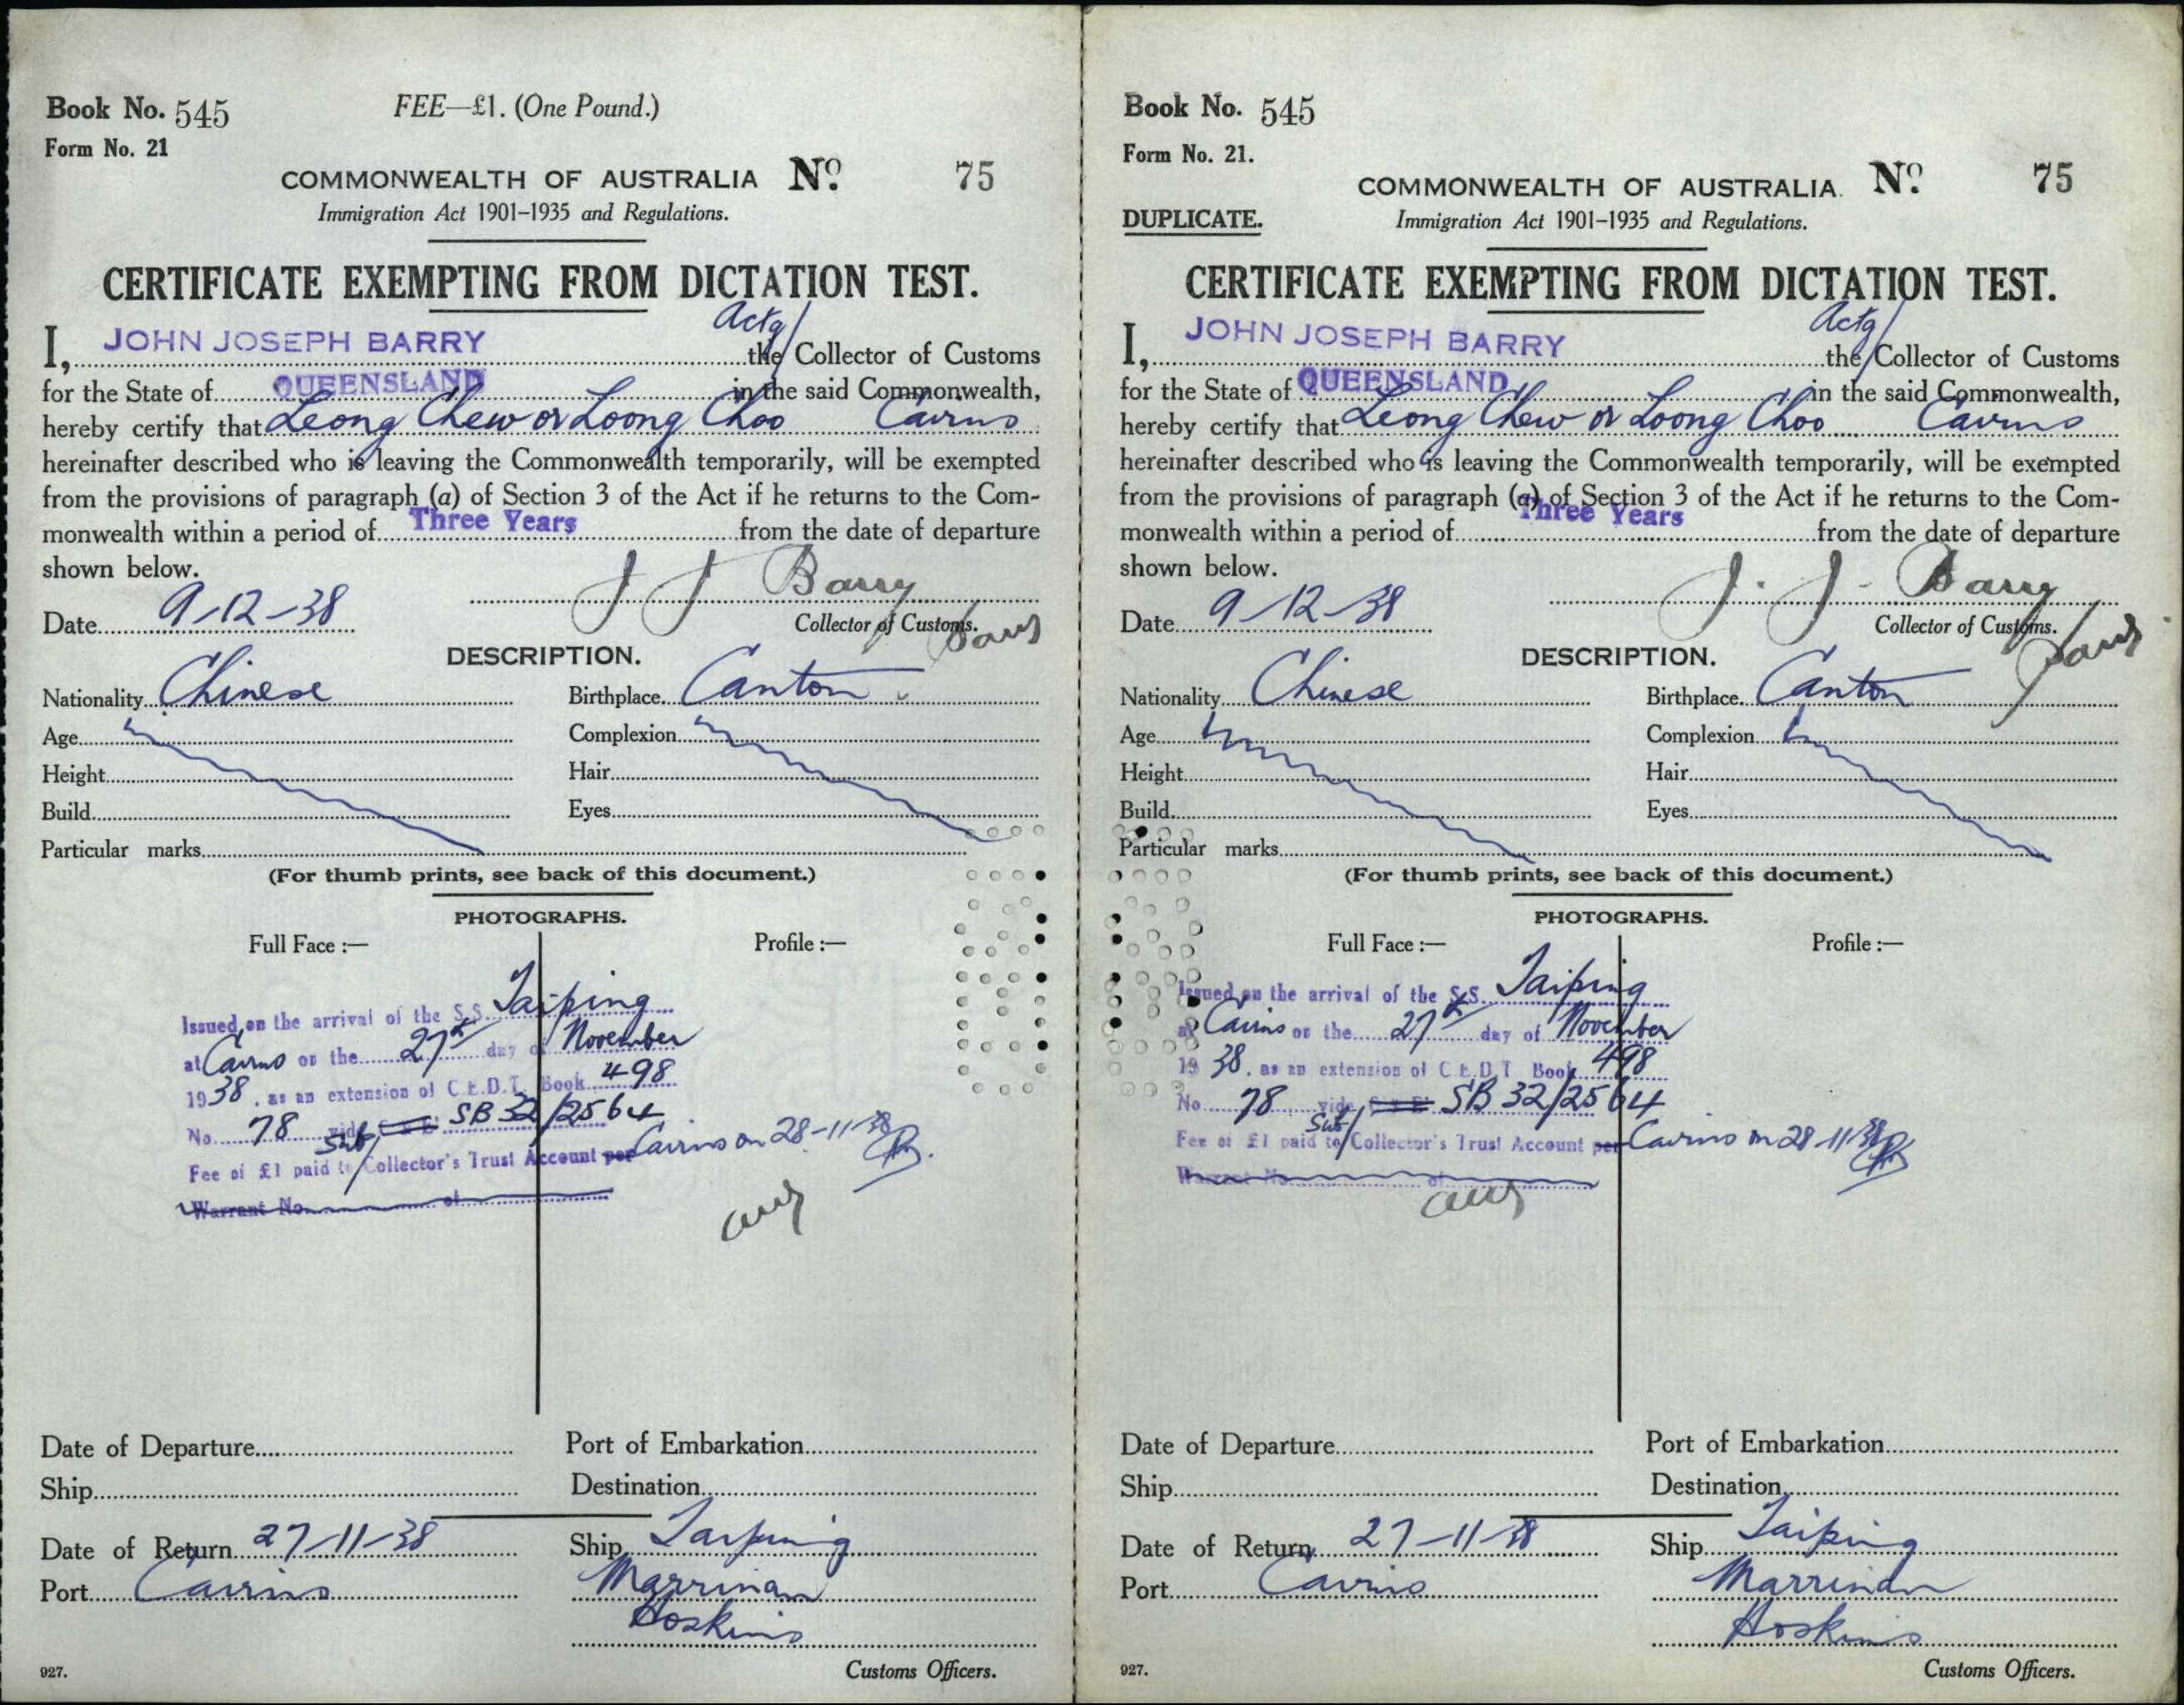 Book No. 545
FEE—£1. (One Pound.)
Form No. 21
COMMONWEALTH OF AUSTRALIA No. 75
Immigration Act 1901–1935 and Regulations.
CERTIFICATE EXEMPTING FROM DICTATION TEST.
Actg/
I, JOHN JOSEPH BARRY the Collector of Customs
for the State of QUEENSLAND in the said Commonwealth,
hereby certify that Leong Chew or Loong Choo Cairns
hereinafter described who is leaving the Commonwealth temporarily, will be exempted
from the provisions of paragraph (a) of Section 3 of the Act if he returns to the Com-
monwealth within a period of Three Years from the date of departure
shown below.
J J Barry
Date 9-12-38
Collector of Customs.
DESCRIPTION.
Nationality Chinese Birthplace Canton
Age Complexion
Height Hair
Build Eyes
Particular marks
(For thumb prints, see back of this document.)
PHOTOGRAPHS.
Full Face :— Profile :—
Issued on the arrival of the S.S. Taiping
at Cairns on the 27th day of November
1938, as an extension of C.E.D.T. Book 498
No. 78 vide SB 32/2564
Sub/
Fee of £1 paid to Collector's Trust Account per Cairns on 28-11-38
Warrant No. of
Date of Departure Port of Embarkation
Ship Destination
Date of Return 27-11-38 Ship Taiping
Port Cairns Marrinan
Hoskins
927. Customs Officers.
Book No. 545
Form No. 21.
COMMONWEALTH OF AUSTRALIA. No. 75
DUPLICATE. Immigration Act 1901–1935 and Regulations.
CERTIFICATE EXEMPTING FROM DICTATION TEST.
Actg/
I, JOHN JOSEPH BARRY the Collector of Customs
for the State of QUEENSLAND in the said Commonwealth,
hereby certify that Leong Chew or Loong Choo Cairns
hereinafter described who is leaving the Commonwealth temporarily, will be exempted
from the provisions of paragraph (a) of Section 3 of the Act if he returns to the Com-
monwealth within a period of Three Years from the date of departure
shown below.
J. J. Barry
Date 9-12-38
Collector of Customs.
DESCRIPTION.
Nationality Chinese Birthplace Canton
Age Complexion
Height Hair
Build Eyes
Particular marks
(For thumb prints, see back of this document.)
PHOTOGRAPHS.
Full Face :— Profile :—
Issued on the arrival of the S.S. Taiping
at Cairns on the 27th day of November
1938, as an extension of C.E.D.T Book 498
No. 78 vide SB 32/2564
Sub/
Fee of £1 paid to Collector's Trust Account per Cairns on 28-11-38
Warrant No. of
Date of Departure Port of Embarkation
Ship Destination
Date of Return 27-11-38 Ship Taiping
Port Cairns Marrinan
Hoskins
927. Customs Officers.